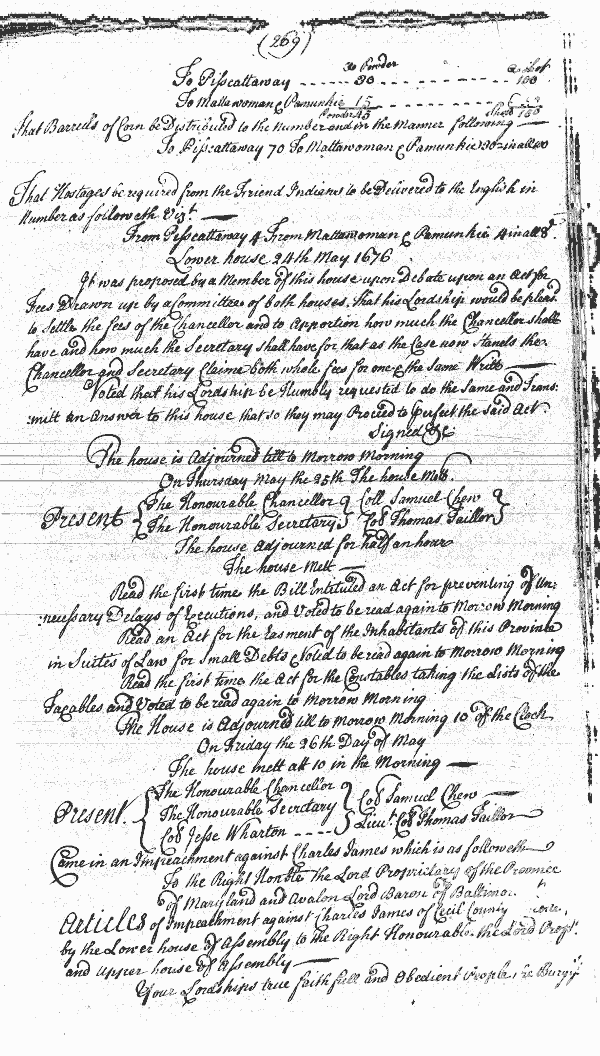 (269)
lb Powder
To Pisscattaway ---- 30 ---- 100
To Mattawoman & Pamunkie 15 ----
Powder 45 Shott 150
That Barrells of Corn be Distributed to the number and in the manner following
To Pisscattaway 70 To Mattawoman & Pamunkie in all
That Hostages be required from the Friend Indians to be Delivered to the English in
Number as followeth Vizt.
From Pisscattaway 4 From Mattawoman & Pamunkie 4 in all 8
Lower house 24th May 1676
It was proposed by a Member of this house upon Debate upon an Act for
Fees Drawn up by a Committee of both houses, that his Lordship would be pleasd
to Settle the fees of the Chancellor and to Apportion how much the Chancellor shall
have and how much the Secretary shall have for that as the Case now Stands the
Chancellor and Secretary Claime both whole fees for one & the Same Writt
Voted that his Lordship be Humbly requested to do the Same and Trans:
:mitt an Answer to this house that so they may Proceed to perfect the Said Act
Signed &c
The house is Adjourned till to Morrow Morning
On Thursday May the 25th The house Mett.
Present { The Honourable Chancellor } Coll Samuel Chew }
{ The Honourable Secretary } Col Thomas Taillor }
The house Adjourned for half an hour
The house Mett
Read the first time the Bill Entituled an Act for preventing of Un:
:necessary Delays of Executions, and Voted to be read again to Morrow Morning
Read an Act for the Easment of the Inhabitants of this Province
in Suites of Law for Small Debts Voted to be read again to Morrow Morning
Read the first time the Act for the Constables taking the Lists of the
Taxables and Voted to be read again to Morrow Morning
The House is Adjourned till to morrow Morning 10 of the Clock
On Friday the 26th Day of May
The house mett att 10 in the Morning
Present. { The Honourable Chancellor } Col Samuel Chew
{ The Honourable Secretary }
{ Col Jesse Wharton ---- } Lieut. Col Thomas Taillor
Came in an Impeachment against Charles James which is as followeth
To the Right Honble the Lord Proprietary of the Province
of Maryland and Avalon Lord Baron of Baltimo
Articles of Impeachment against Charles James of Cecil County
by the Lower house of Assembly to the Right Honourable the Lord Propr.
and upper house of Assembly
Your Lordships true faithfull and Obedient People, Burg